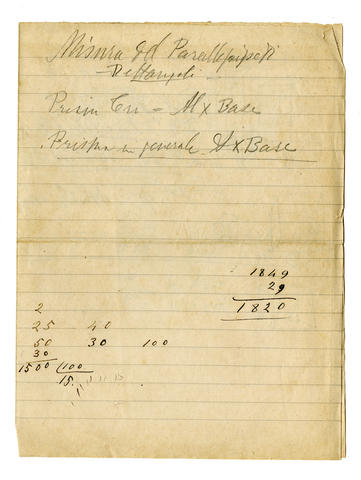 Misura dei Parallepipedi
Rettangoli
Prisma = Al x Base
Prisma in generale A x Base
1849
29
1820
2
25 40
50 30 100
30
1500 (100
15